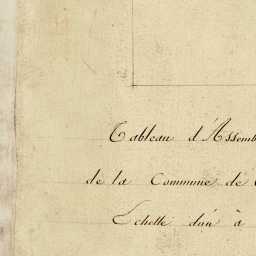 Tableau d'Assemb
de la Commune de
Echelle d'un à